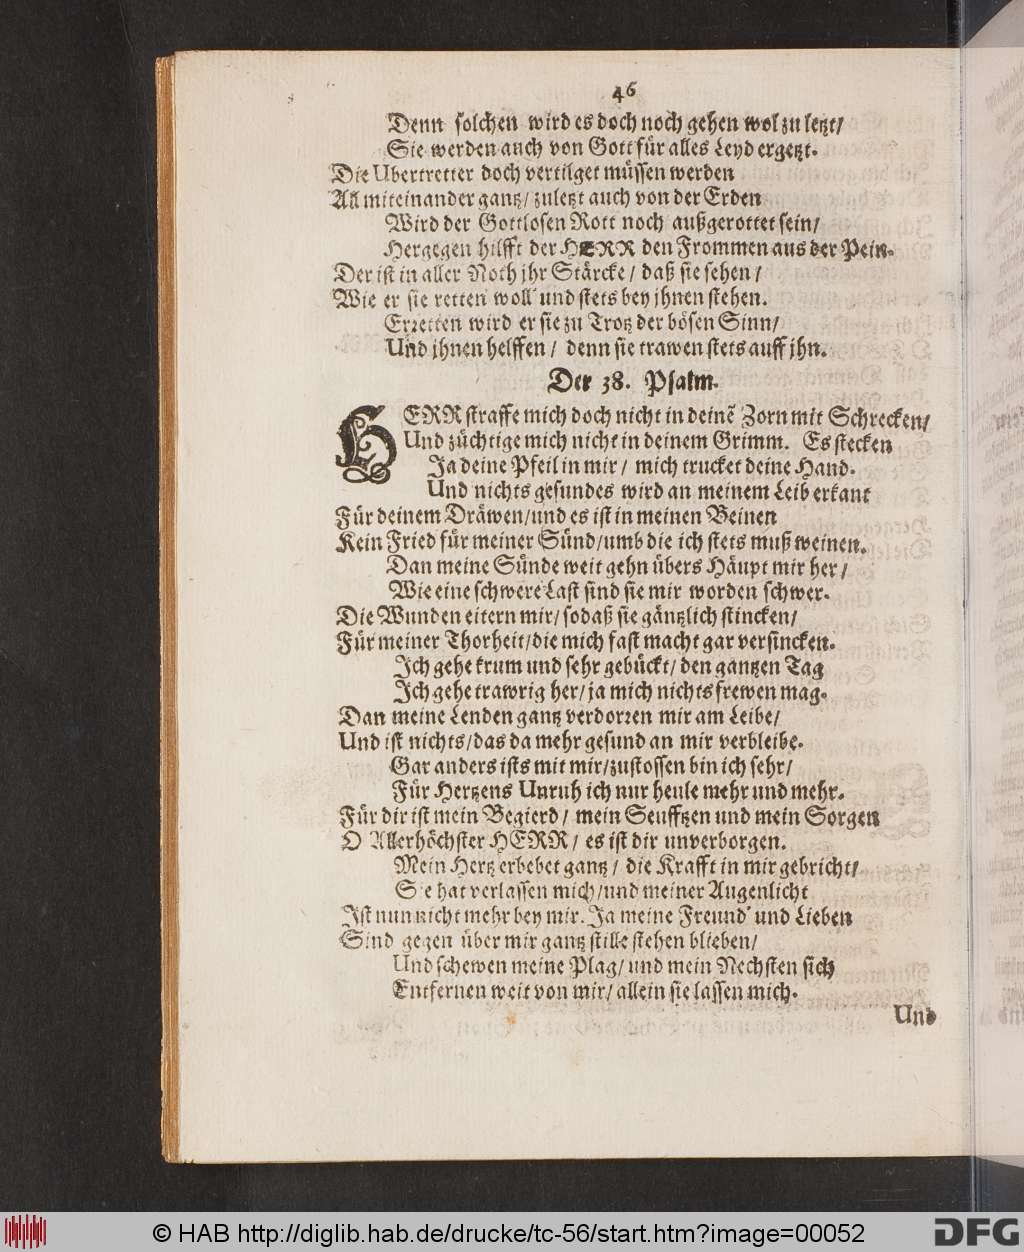 46
Denn solchen wird es doch noch gehen wol zu letzt/
Sie werden auch von Gott für alles Leyd ergetzt.
Die Ubertretter doch vertilget müssen werden
All miteinander gantz/ zuletzt auch von der Erden
Wird der Gottlosen Rott noch außgerottet sein/
Hergegen hilfft der HERR den Frommen aus der Pein.
Der ist in aller Noth jhr Stärcke / daß sie sehen /
Wie er sie retten woll' und stets bey jhnen stehen.
Erretten wird er sie zu Trotz der bösen Sinn/
Und jhnen helffen / denn sie trawen stets auff jhn.
Der 38. Psalm.
HERR straffe mich doch nicht in deinē Zorn mit Schrecken/
Und züchtige mich nicht in deinem Grimm. Es stecken
Ja deine Pfeil in mir / mich trucket deine Hand.
Und nichts gesundes wird an meinem Leib erkant
Für deinem Dräwen/und es ist in meinen Beinen
Kein Fried für meiner Sünd/umb die ich stets muß weinen.
Dan meine Sünde weit gehn übers Häupt mir her /
Wie eine schwere Last sind sie mir worden schwer.
Die Wunden eitern mir/ sodaß sie gäntzlich stincken/
Für meiner Thorheit/die mich fast macht gar versincken.
Ich gehe krum und sehr gebückt/ den gantzen Tag
Ich gehe trawrig her/ ja mich nichts frewen mag.
Dan meine Lenden gantz verdorren mir am Leibe/
Und ist nichts/das da mehr gesund an mir verbleibe.
Gar anders ists mit mir/zustossen bin ich sehr/
Für Hertzens Unruh ich nur heule mehr und mehr.
Für dir ist mein Begierd/ mein Seufftzen und mein Sorgen
O Allerhöchster HERR/ es ist dir unverborgen.
Mein Hertz erbebet gantz / die Krafft in mir gebricht/
Sie hat verlassen mich/und meiner Augenlicht
Ist nun nicht mehr bey mir. Ja meine Freund' und Lieben
Sind gegen über mir gantz stille stehen blieben/
Und schewen meine Plag/ und mein Nechsten sich
Entfernen weit von mir/ allein sie lassen mich.
Und
© HAB http://diglib.hab.de/drucke/tc-56/start.htm?image=00052
DFG